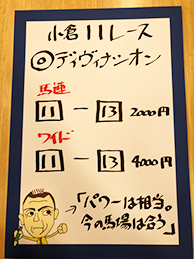 小倉11レース
◎ディヴィナシオン
馬連
11 ― 13 2000円
ワイド
11 ― 13 4000円
→「パワーは相当。
今の馬場は合う」